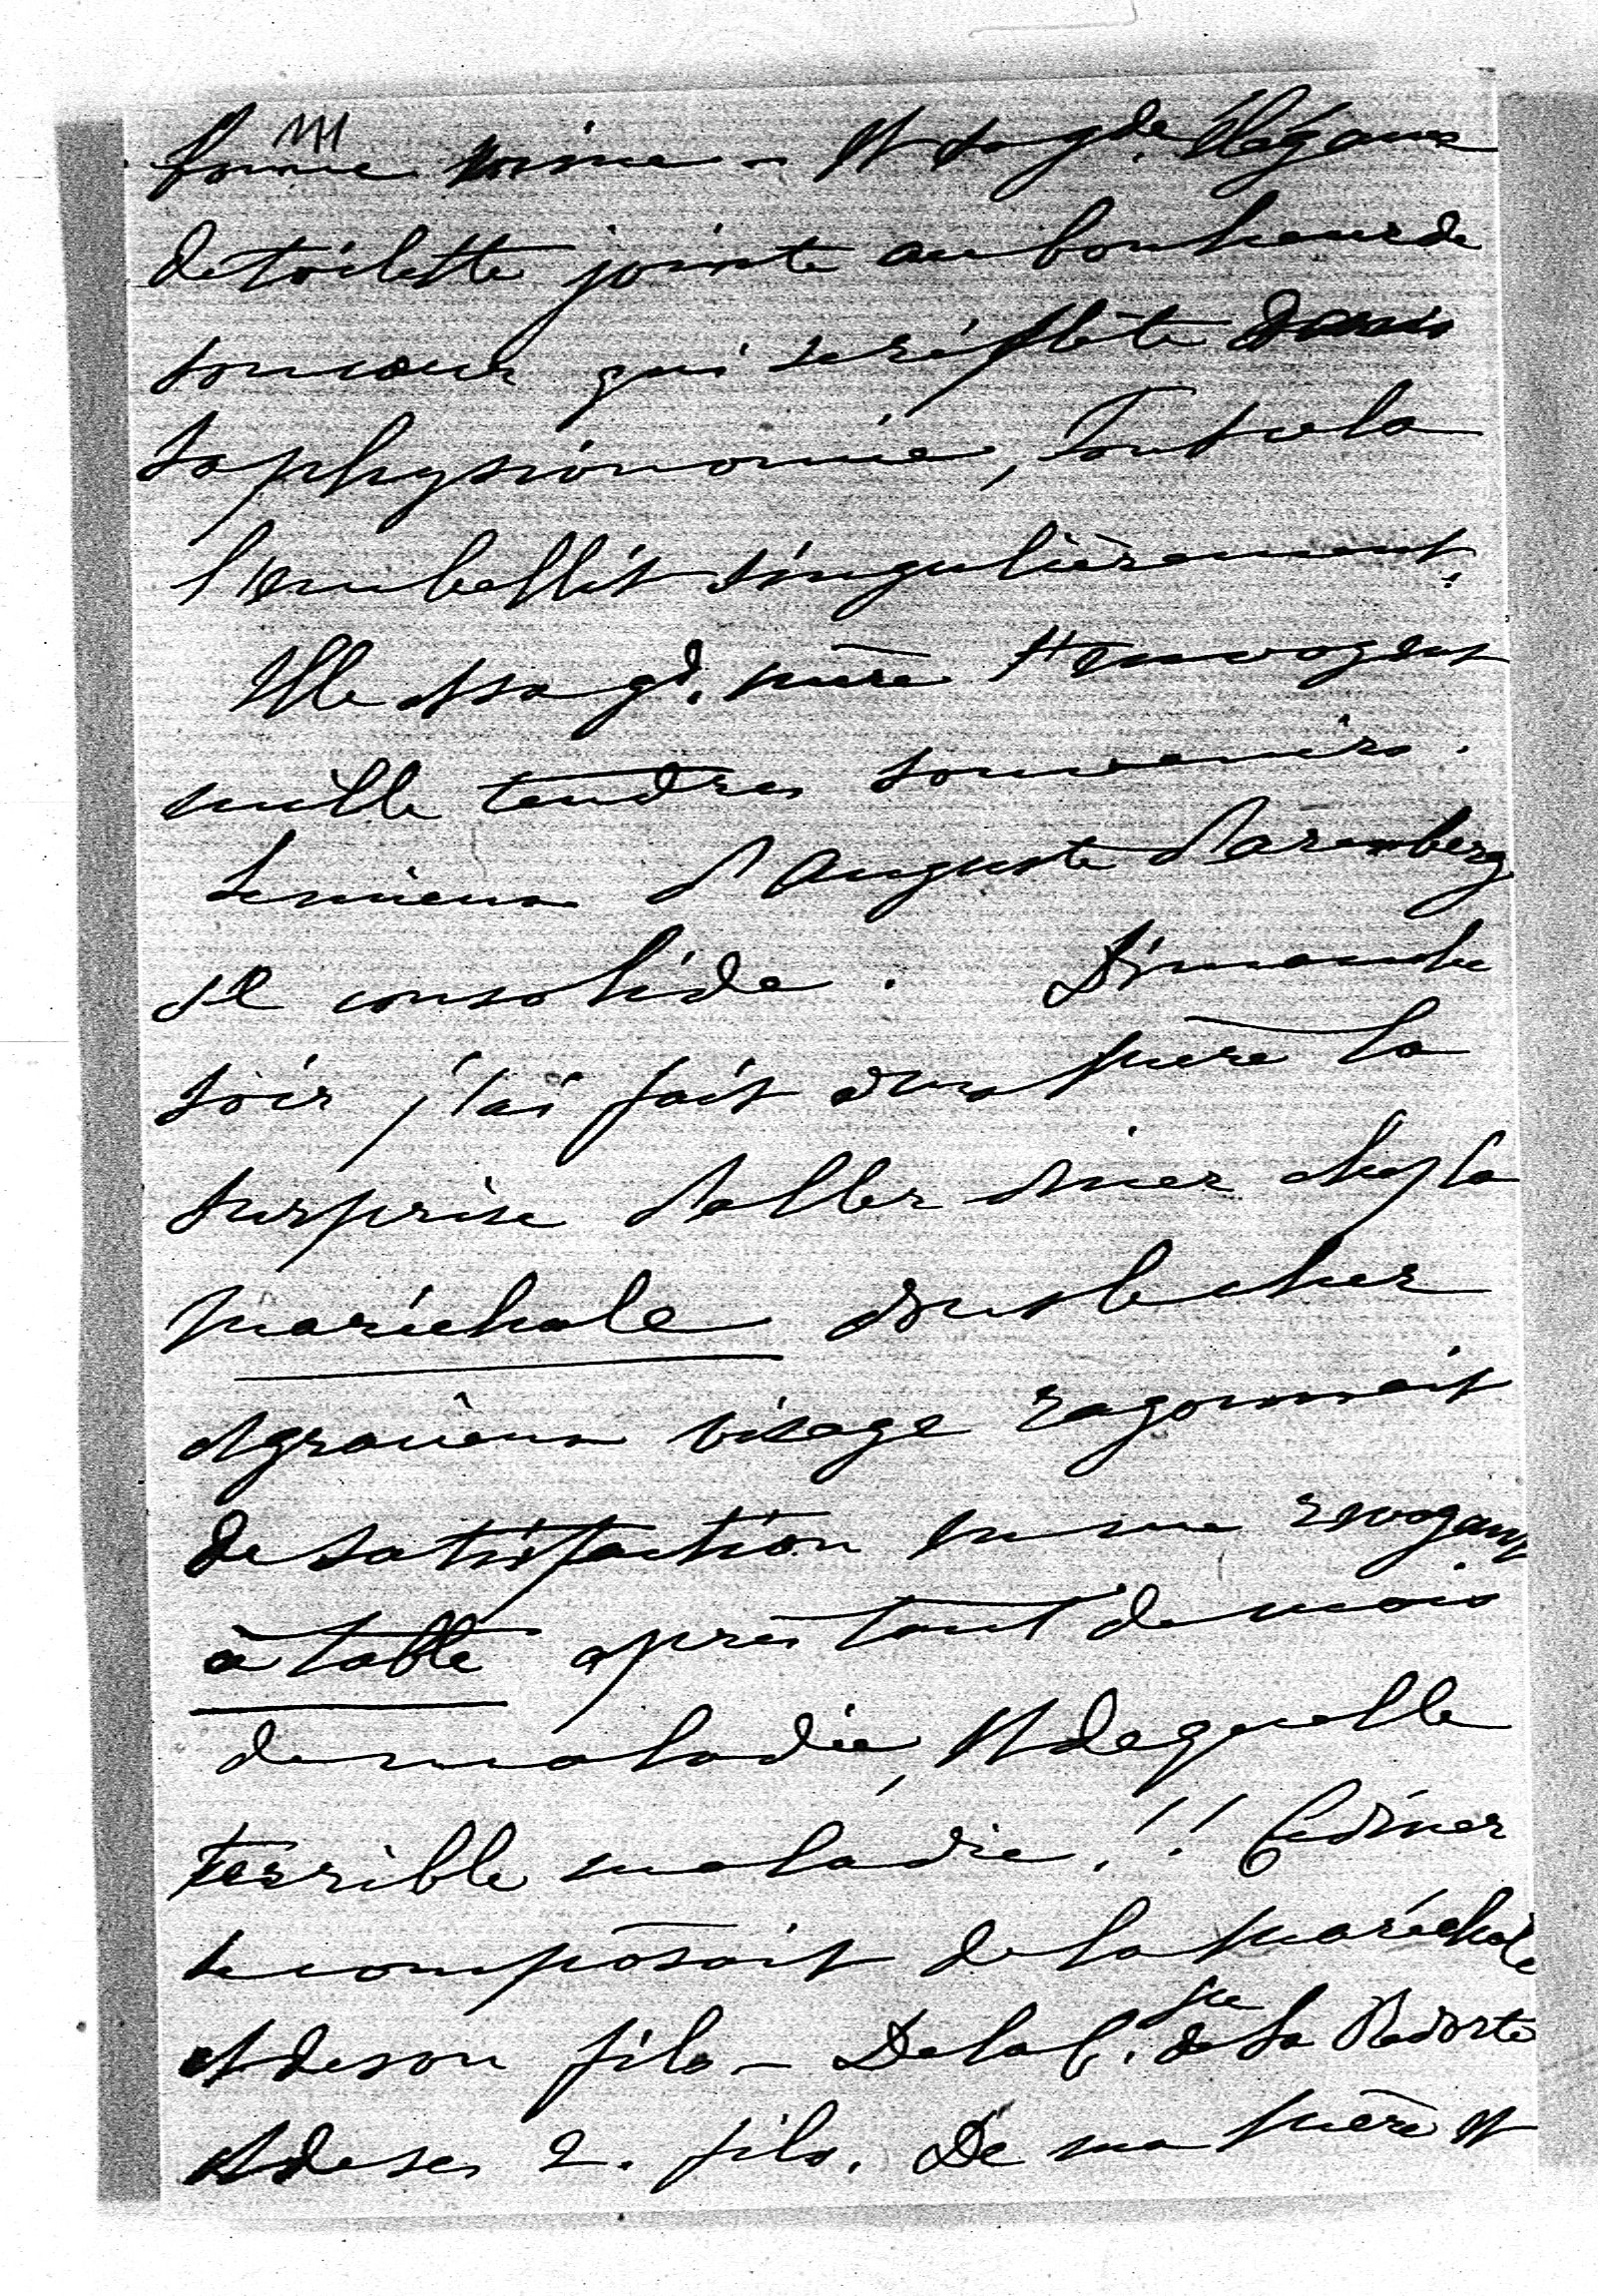 bonne mine – et sa gde. élégance
de toilette jointe au bonheur de
son cœur qui se réflète dans
sa physionomie, tout cela
l'embellit singulièrement.
Elle et sa gd. mère t'envoyent
mille tendres souvenirs.
Le mieux d'Auguste d'Aremberg
se consolide. Dimanche
soir j'ai fait à ma mère la
surprise d'aller diner chez la
maréchale dont le cher
et gracieux visage rayonnait
de satisfaction en me revoyant
à table après tant de mois
de maladie, et de quelle
terrible maladie!! Ce diner
se composait de la maréchale
et de son fils – De la Ctsse. de La Redorte
et de ses 2. fils. De ma mère et